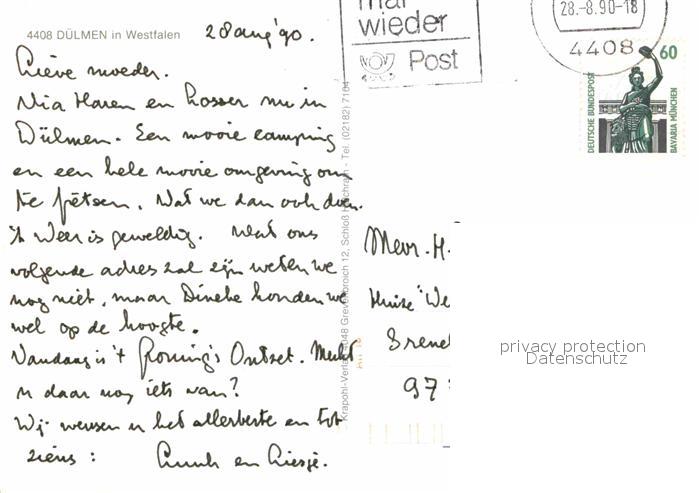 4408 DÜLMEN in Westfalen
28 aug '90.
Lieve moeder.
Via Haren en Losser nu in
Dülmen. Een mooie camping
en een hele mooie omgeving om
te fietsen. Wat we dan ook doen.
't Weer is geweldig. Wat ons
volgende adres zal zijn weten we
nog niet, maar Dineke houden we
wel op de hoogte.
Vandaag is 't Gronings Ontzet. Merkt
u daar nog iets van?
Wij wensen u het allerbeste en tot
ziens: en
Krapohl-Verlag 4048 Grevenbroich 12, Schloß Hülchrath - Tel. (02182) 7104
mal
wieder
Post
28.-8.90-18
4408
60
DEUTSCHE BUNDESPOST
BAVARIA MÜNCHEN
Mevr. H.
Huize "We
97
privacy protection
Datenschutz